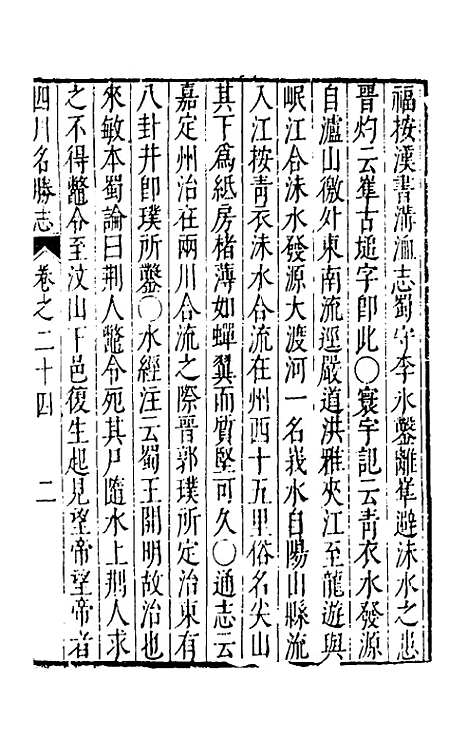 福按漢書溝洫志蜀守李氷鑿離𡺾避沫水之患
晉灼云𡺾古塠字卽此〇寰宇記云靑衣水發源
自瀘山徼外東南流逕嚴道洪雅夾江至龍遊與
岷江合沫水發源大渡河一名峩水自陽山縣流
入江按靑衣沫水合流在州西十五里俗名尖山
其下爲紙房楮薄如蟬翼而質堅可久〇通志云
嘉定州治在兩川合流之際晉郭璞所定治東有
八卦井卽璞所鑿〇水經注云蜀王開明故治也
來敏本蜀論曰荆人鱉令死其尸隨水上荆人求
之不得鱉令至汶山下邑復生起見望帝望帝者
四川名勝志 卷之二十四 二